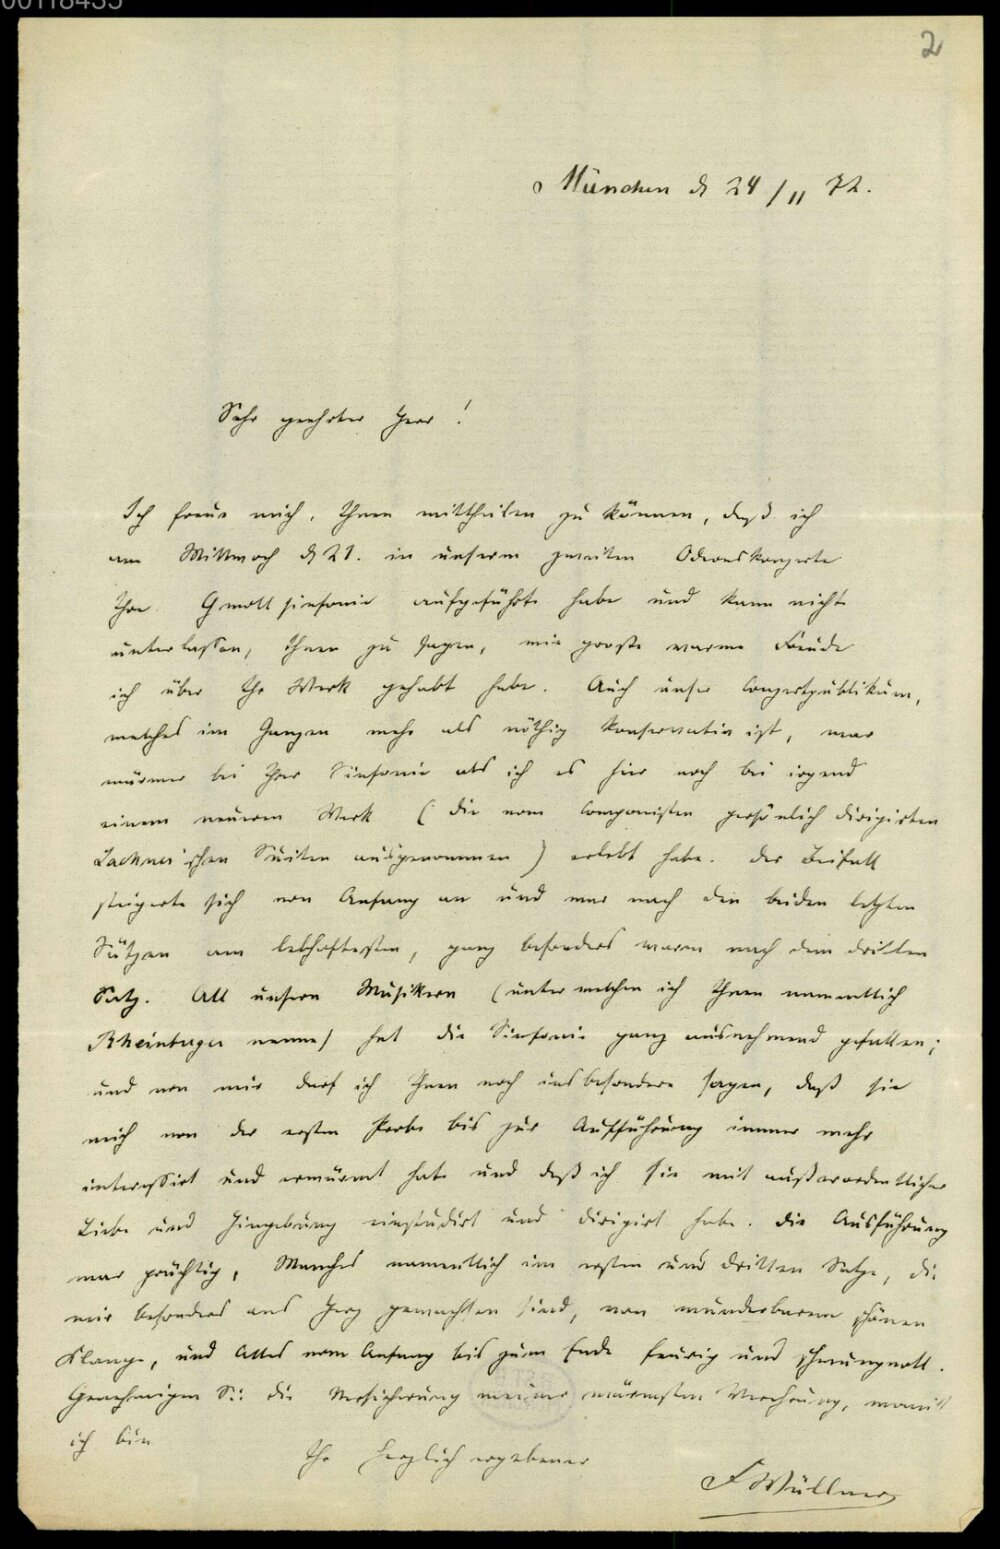 00118435
2
München d 24/11 72.
Sehr geehrter Herr!
Ich freue mich, Ihnen mittheilen zu können, daß ich
am Mittwoch d 21. in unserm zweiten Odeonskonzerte
Ihre Gmoll sinfonie aufgeführt habe und kann nicht
unterlassen, Ihnen zu sagen, wie große warme Freude
ich über Ihr Werk gehabt habe. Auch unser Conzertpublikum,
welches im Ganzen mehr als nöthig konservativ ist, war
wärmer bei Ihrer Sinfonie als ich es hier noch bei irgend
einem neueren Werk (die vom Componisten persönlich dirigirten
Lachner'schen Suiten ausgenommen) erlebt habe. Der Beifall
steigerte sich von Anfang an und war nach den beiden letzten
Sätzen am lebhaftesten, ganz besonders warm nach dem dritten
Satz. All unsern Musikern (unter welchen ich Ihnen namentlich
Rheinberger nenne) hat die Sinfonie ganz ausnehmend gefallen;
und von mir darf ich Ihnen noch insbesondere sagen, daß sie
mich von der ersten Probe bis zur Aufführung immer mehr
interessirt und erwärmt hat und daß ich sie mit außerordentlicher
Liebe und Hingebung einstudirt und dirigirt habe. Die Ausführung
war prächtig, Manches namentlich im ersten und dritten Satze, die
mir besonders ans Herz gewachsen sind, von wunderbarem schönen
Klange, und Alles vom Anfang bis zum Ende feurig und schwungvoll.
Genehmigen Sie die Versicherung meiner wärmsten Verehrung, womit
ich bin
Ihr herzlich ergebener
F Wüllner